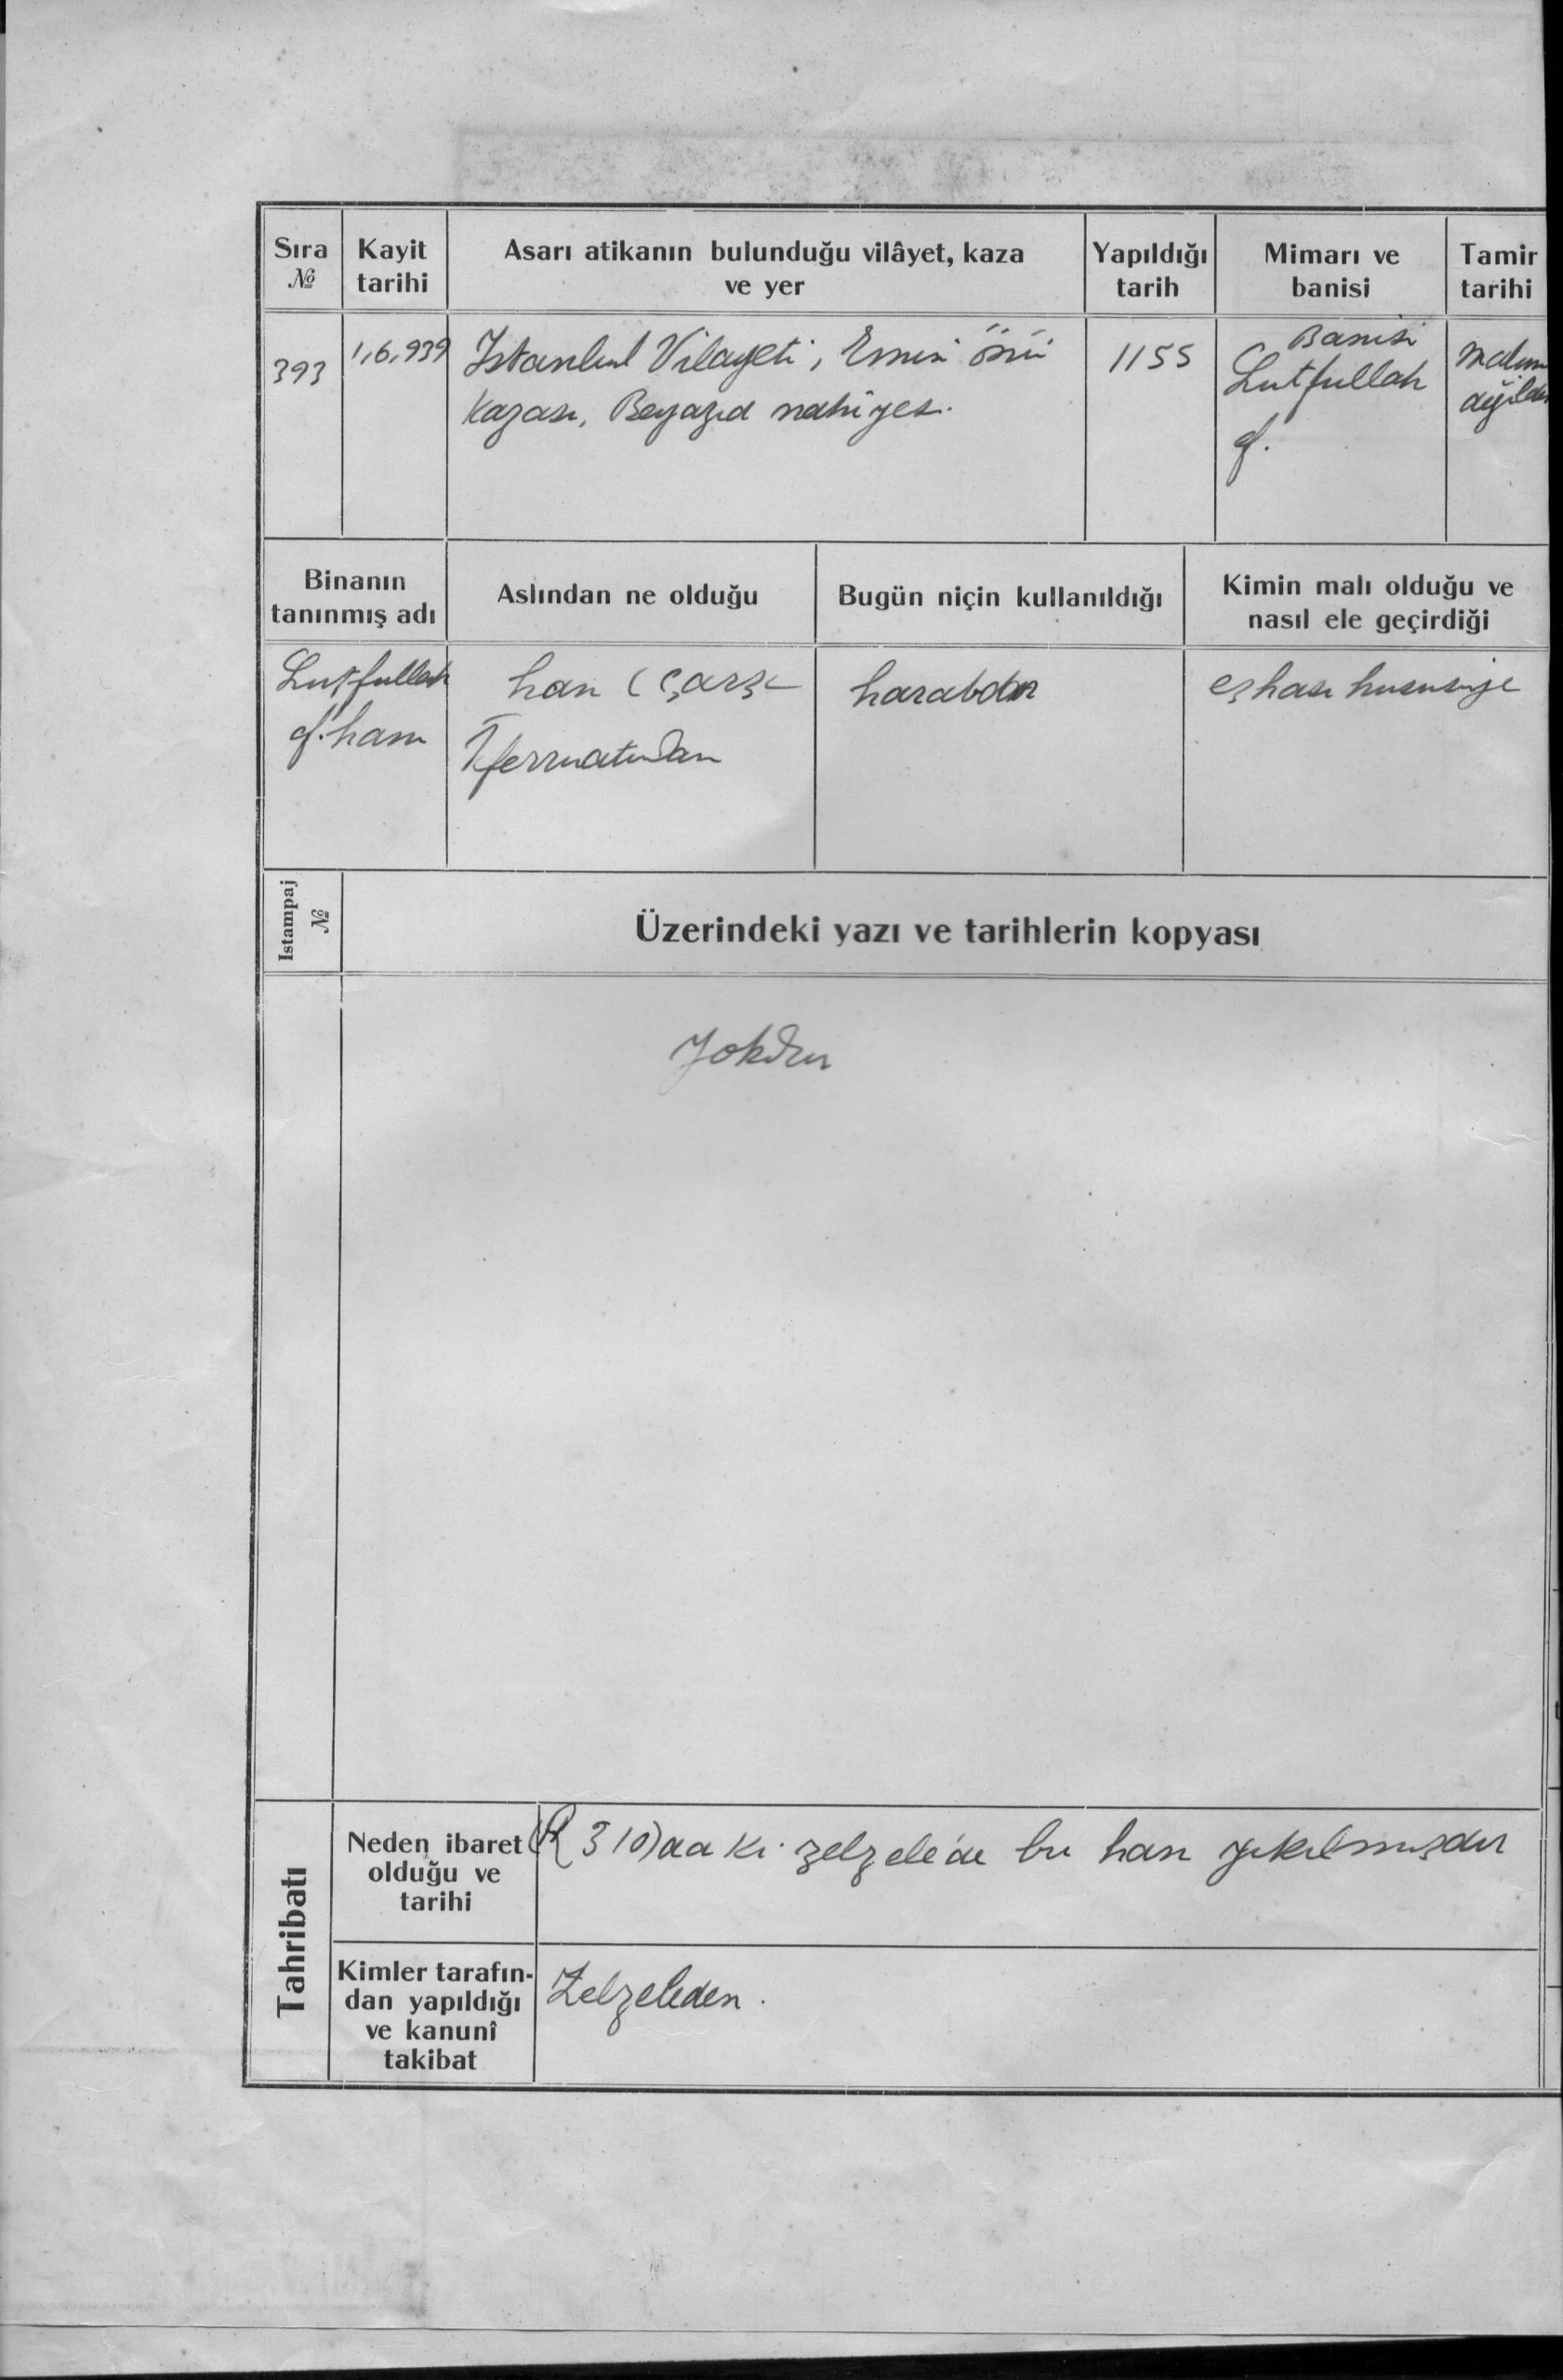 Sıra
№
Kayit
tarihi
Asarı atikanın bulunduğu vilâyet, kaza
ve yer
Yapıldığı
tarih
Mimarı ve
banisi
Tamir
tarihi
393
1,6,939
Istanbul Vilayeti, Emin önü
kazası, Beyazıd nahiyesi.
1155
Banisi
Lutfullah
ef.
malum
değildir
Binanın
tanınmış adı
Aslından ne olduğu
Bugün niçin kullanıldığı
Kimin malı olduğu ve
nasıl ele geçirdiği
Lutfullah
ef. hanı
han (çarşı
ferruatından
harabdır
eşhası hususiye
Istampaj
№
Üzerindeki yazı ve tarihlerin kopyası
Yokdur
Tahribatı
Neden ibaret
olduğu ve
tarihi
(R 310)da ki zelzele'de bu han yıkılmışdır
Kimler tarafın-
dan yapıldığı
ve kanunî
takibat
Zelzeleden.